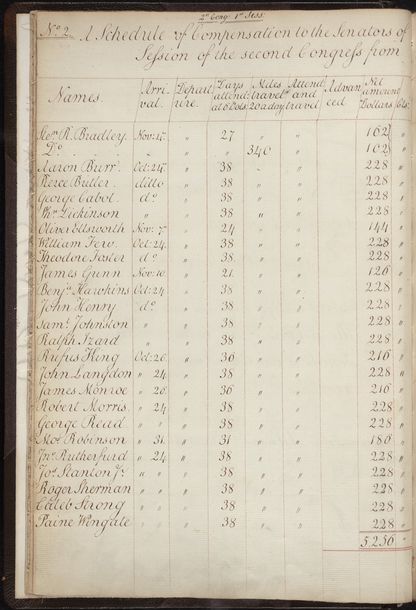 2d Cong: 1st Sess:
No 2. A Schedule of Compensation to the Senators of
Session of the second Congress from
Names. Arri-val. Depart ure. Days attend: at 6 Dols. Miles travel: 20 a day Attend: and travel Advan ced Net amount Dollars Cts.
Stepn R. Bradley Nov: 4. " 27 " " 162 "
Do " " 340 " 102 "
Aaron Burr. Oct: 24. " 38 " " 228 "
Pierce Butler. ditto " 38 " " 228 "
George Cabot. do " 38 " " 228 "
Phn Dickinson " " 38 " " 228 "
Oliver Ellsworth Nov: 7. " 24 " " 144 "
William Few. Oct: 24. " 38 " " 228 "
Theodore Foster do " 38 " " 228 "
James Gunn Nov: 10. " 21. " " 126 "
Benja Hawkins Oct: 24 " 38 " " 228 "
John Henry do " 38 " " 228 "
Saml Johnston " " 38 " " 228 "
Ralph Izard " " 38 " " 228 "
Rufus King Oct: 26. " 36 " " 216 "
John Langdon " 24 " 38 " " 228 "
James Monroe " 26. " 36 " " 216 "
Robert Morris. " 24 " 38 " " 228 "
George Read. " " " 38 " " 228 "
Mos: Robinson " 31. " 31 " " 186 "
Jno Rutherfurd " 24 " 38 " " 228 "
Jos. Stanton Jr. " " " 38 " " 228 "
Roger Sherman " " " 38 " " 228 "
Caleb Strong " " " 38 " " 228 "
Paine Wingate " " " 38 " " 228 "
5,256 "